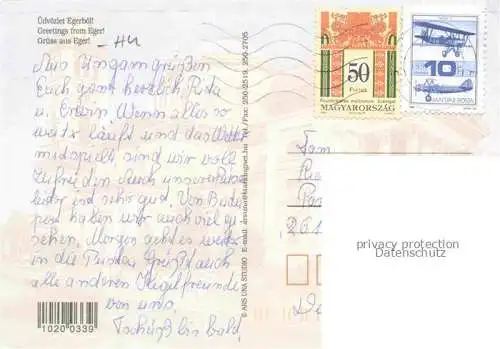 Üdvözlet Egerből!
Greetings from Eger!
Grüsse aus Eger!
-HU
Aus Ungarn grüßen
Euch ganz herzlich, Rita
u. Erwin. Wenn alles so
weiter läuft und das Wetter
mitspielt, sind wir voll
zufrieden. Auch unser
sind sehr gut. Von Buda
pest haben wir auch viel ge
sehen. Morgen geht es weiter
in die Pusta. Grüßt auch
alle anderen Kegelfreunde
von uns.
Tschüß bis bald.
1020 0339
© ARS UNA STUDIO E-mail: Tel./Fax: 250-2519, 250-2705
50
Forint
MAGYARORSZÁG
10
MAGYAR POSTA
Fam
261
privacy protection
Datenschutz